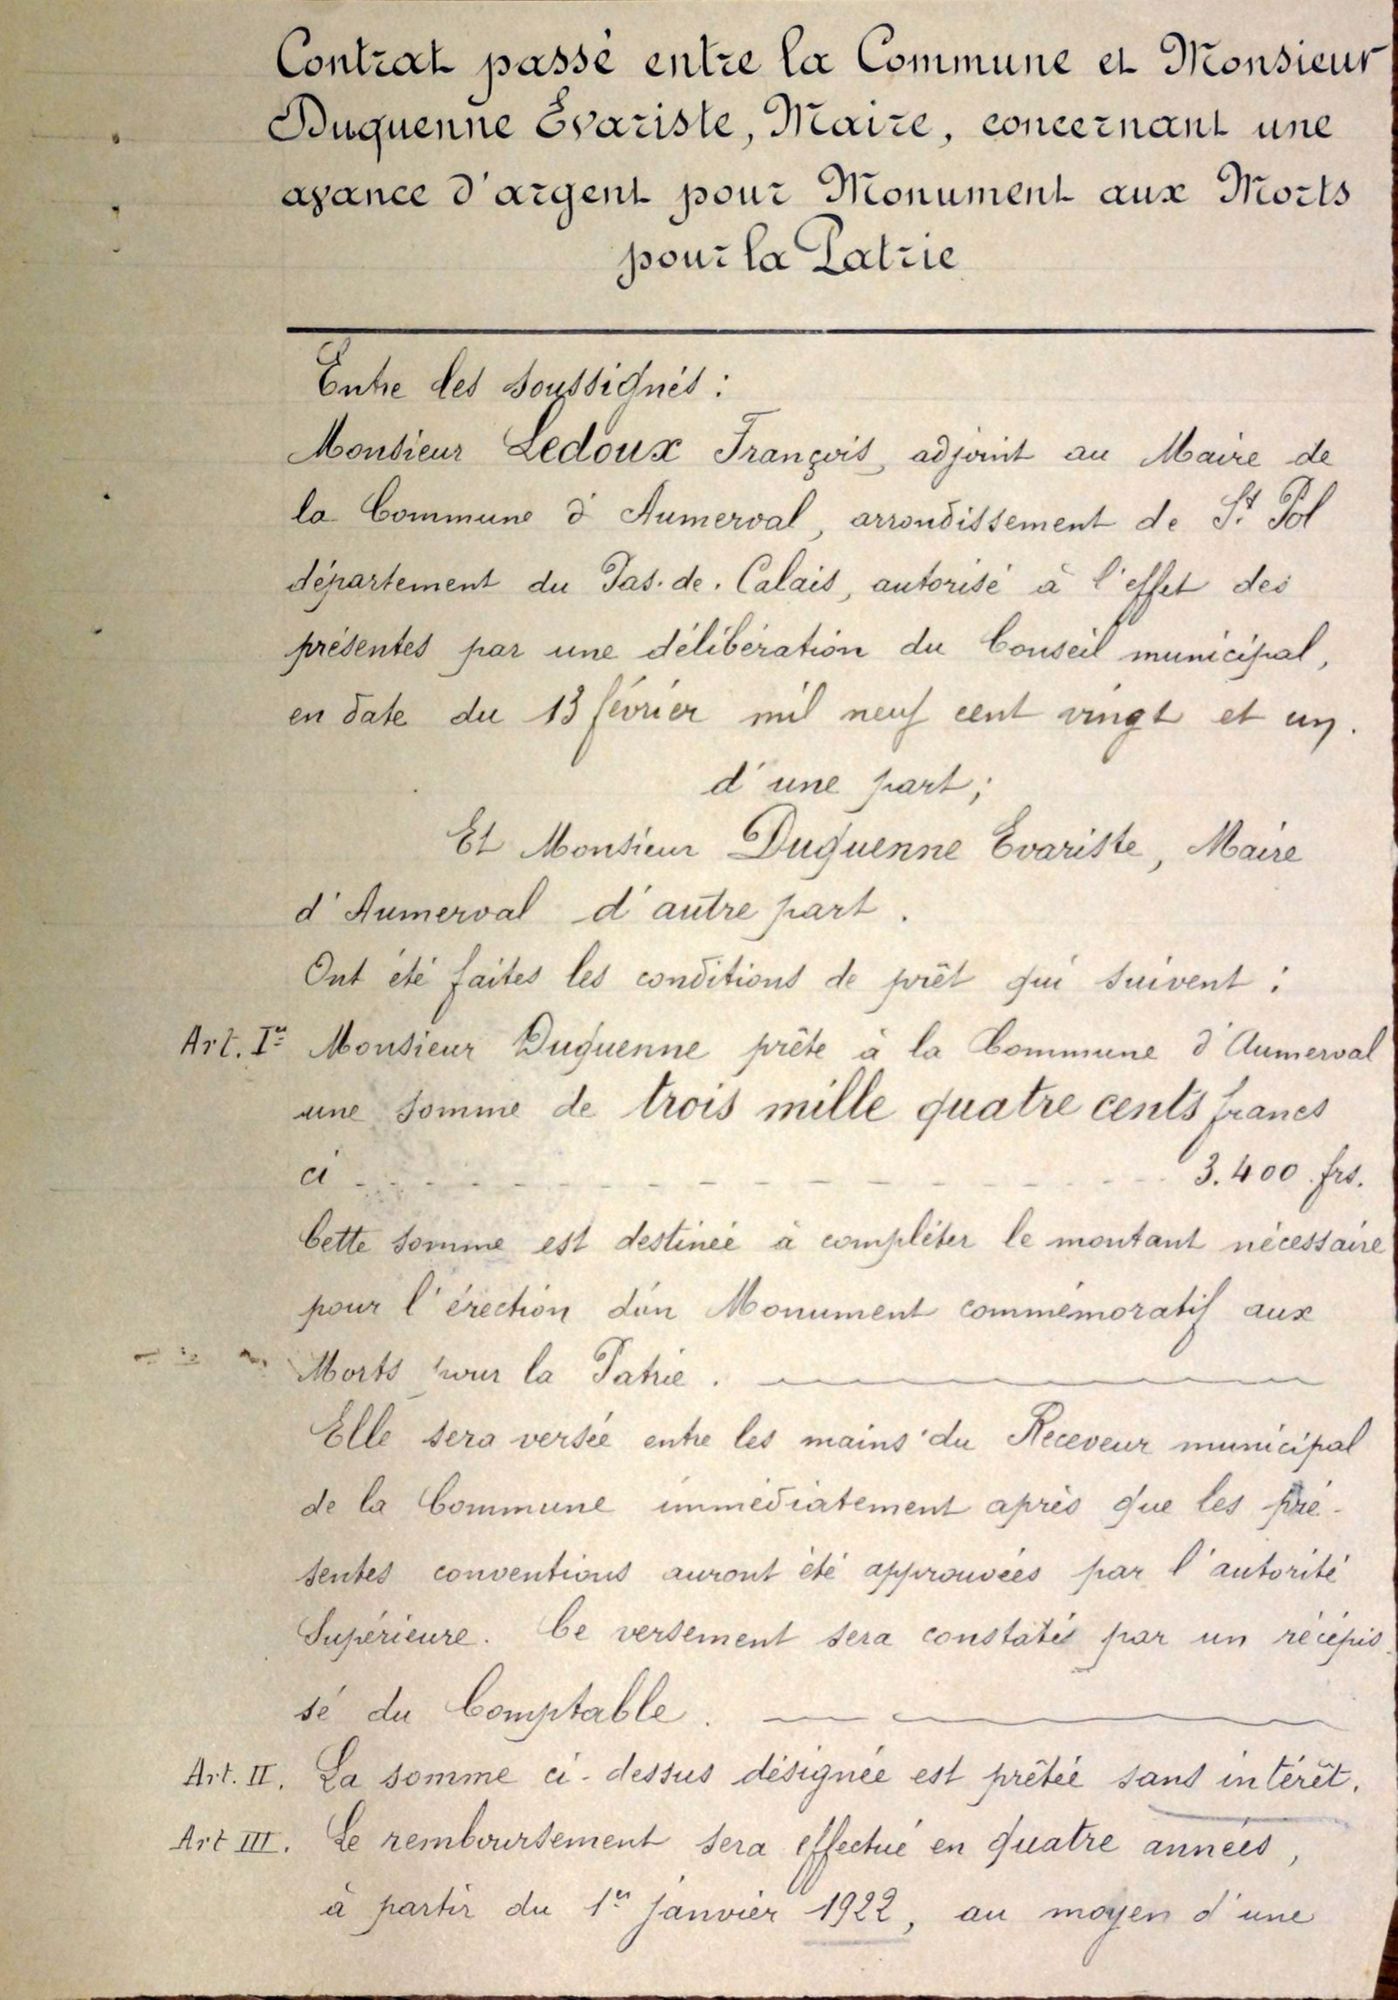 Contrat passé entre la Commune et Monsieur
Duquenne Évariste, Maire, concernant une
avance d'argent pour Monument aux Morts
pour la Patrie
Entre les soussignés :
Monsieur Ledoux François, adjoint au Maire de
la Commune d'Aumerval, arrondissement de St Pol
département du Pas-de-Calais, autorisé à l'effet des
présentes par une délibération du Conseil municipal,
en date du 13 février mil neuf cent vingt et un.
d'une part ;
Et Monsieur Duquenne Evariste, Maire
d'Aumerval d'autre part.
Ont été faites les conditions de prêt qui suivent :
Art. Ier Monsieur Duquenne prête à la Commune d'Aumerval
une somme de trois mille quatre cents francs
ci - - - - - - - - - - - - - - - 3.400 frs.
Cette somme est destinée à compléter le montant nécessaire
pour l'érection d'un Monument commémoratif aux
Morts pour la Patrie.
Elle sera versée entre les mains du Receveur municipal
de la Commune immédiatement après que les pré-
sentes conventions auront été approuvées par l'autorité
Supérieure. Ce versement sera constaté par un récépis-
sé du Comptable.
Art. II. La somme ci-dessus désignée est prêtée sans intérêt.
Art III. Le remboursement sera effectué en quatre années,
à partir du 1er janvier 1922, au moyen d'une